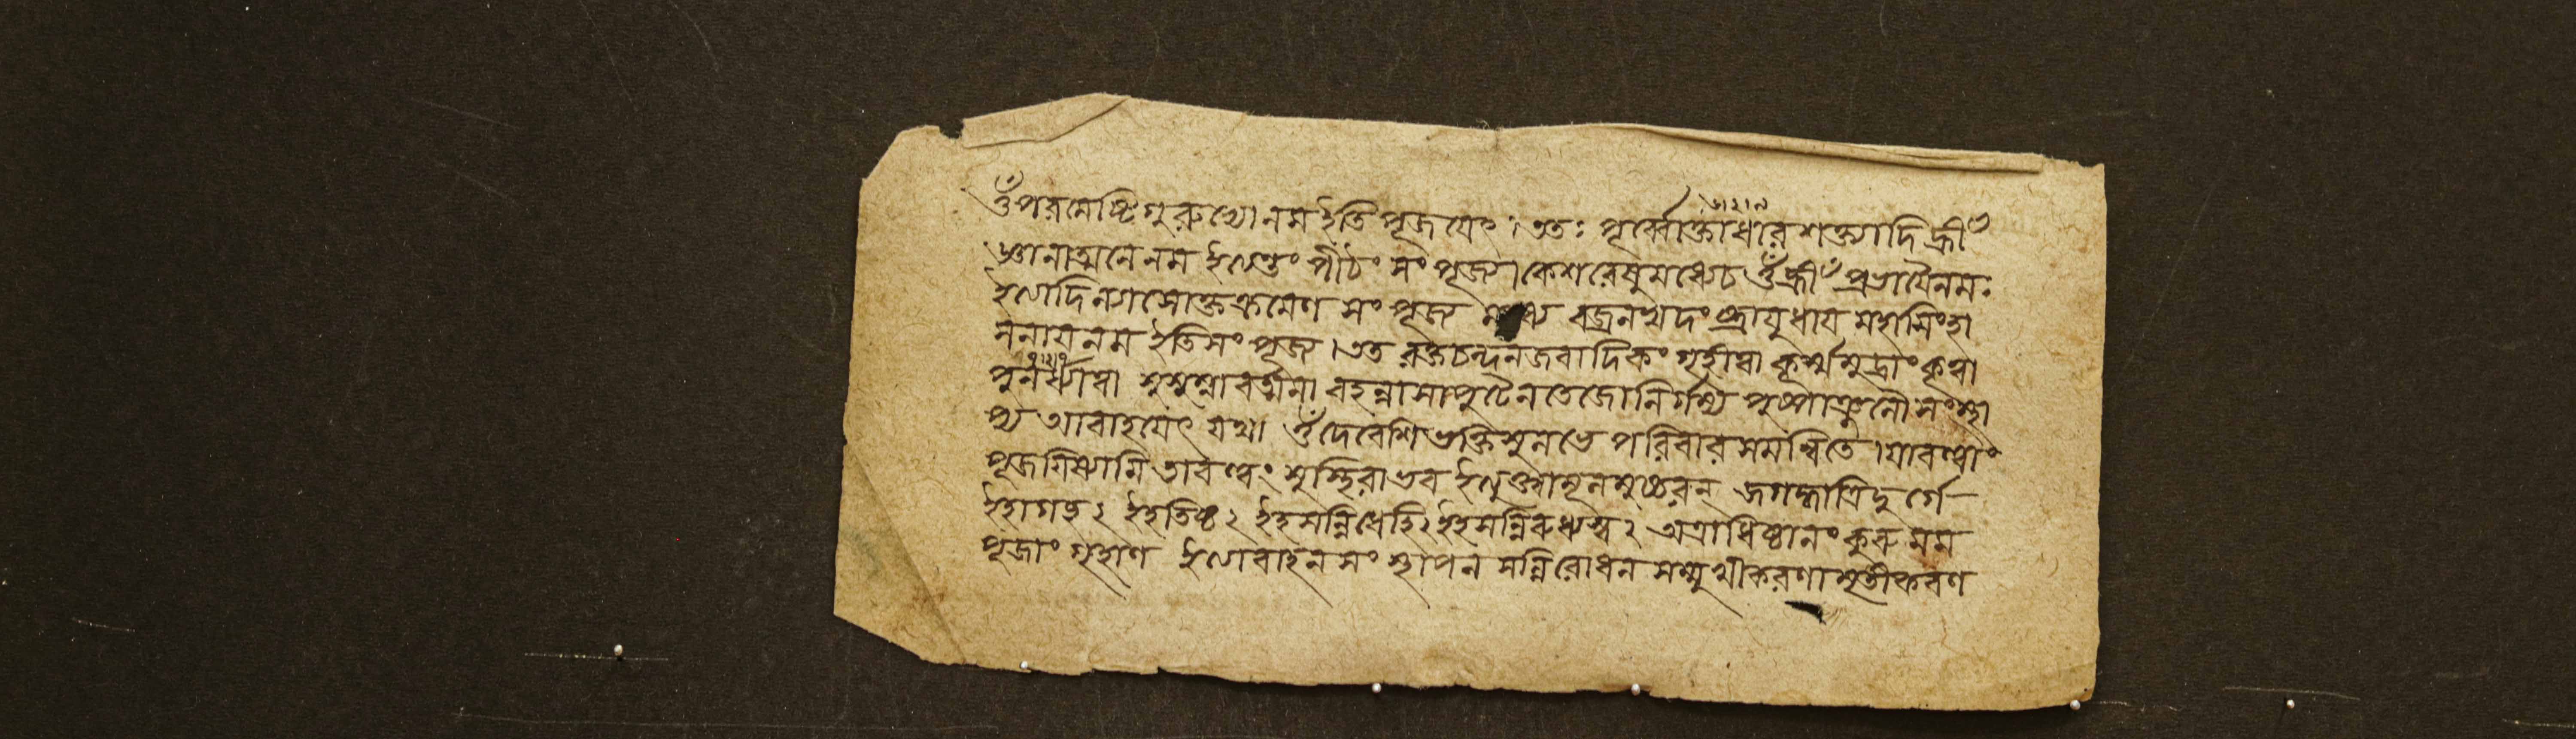 ওঁপরমেষ্টিগুরুভ্যোনমইতিপূজয়েৎ।ততঃ পূর্ব্বোক্তাধারশক্ত্যাদি হ্রীঁ
জ্ঞানাত্মনেনম ইত্যন্তং পীঠং সংপূজ্য।কেশরেষুমধ্যেচ ওঁহ্রীঁ প্রভায়ৈনমঃ
ইত্যাদি ক্রমেণ সংপূজ্য বজ্রনখদংষ্ট্রায়ুধায় মহাসিংহা
সনায়নম ইতিসংপূজ্য।তত রক্তচন্দনজবাদিকং গৃহীত্বা কূর্ম্মমুদ্রাং কৃত্বা
পুনর্ধ্যাত্বা শুশুম্নাবর্ত্মনা বহন্নাসাপুটেন তেজোনির্গম্য পুষ্পাঞ্জলৌ সংস্থা
প্য আবাহয়েৎ যথা ওঁদেবেশিভক্তিশুলভে পরিবারসমন্বিতে।যাবত্ত্বাং
পূজয়িষ্যামি তাবত্ত্বং শুস্থিরাভব ইত্যুক্ত্বামূলমুচ্চরন্ জগদ্ধাত্রিদুর্গে
ইহাগচ্ছ২ ইহতিষ্ঠ২ ইহসন্নিধেহি২ ইহসন্নিরুধ্যস্ব২ অত্রাধিষ্ঠানং কুরু মম
পূজাং গৃহাণ ইত্যাবাহন সংস্থাপন সন্নিরোধন সম্মুখীকরণামৃতীকরণ